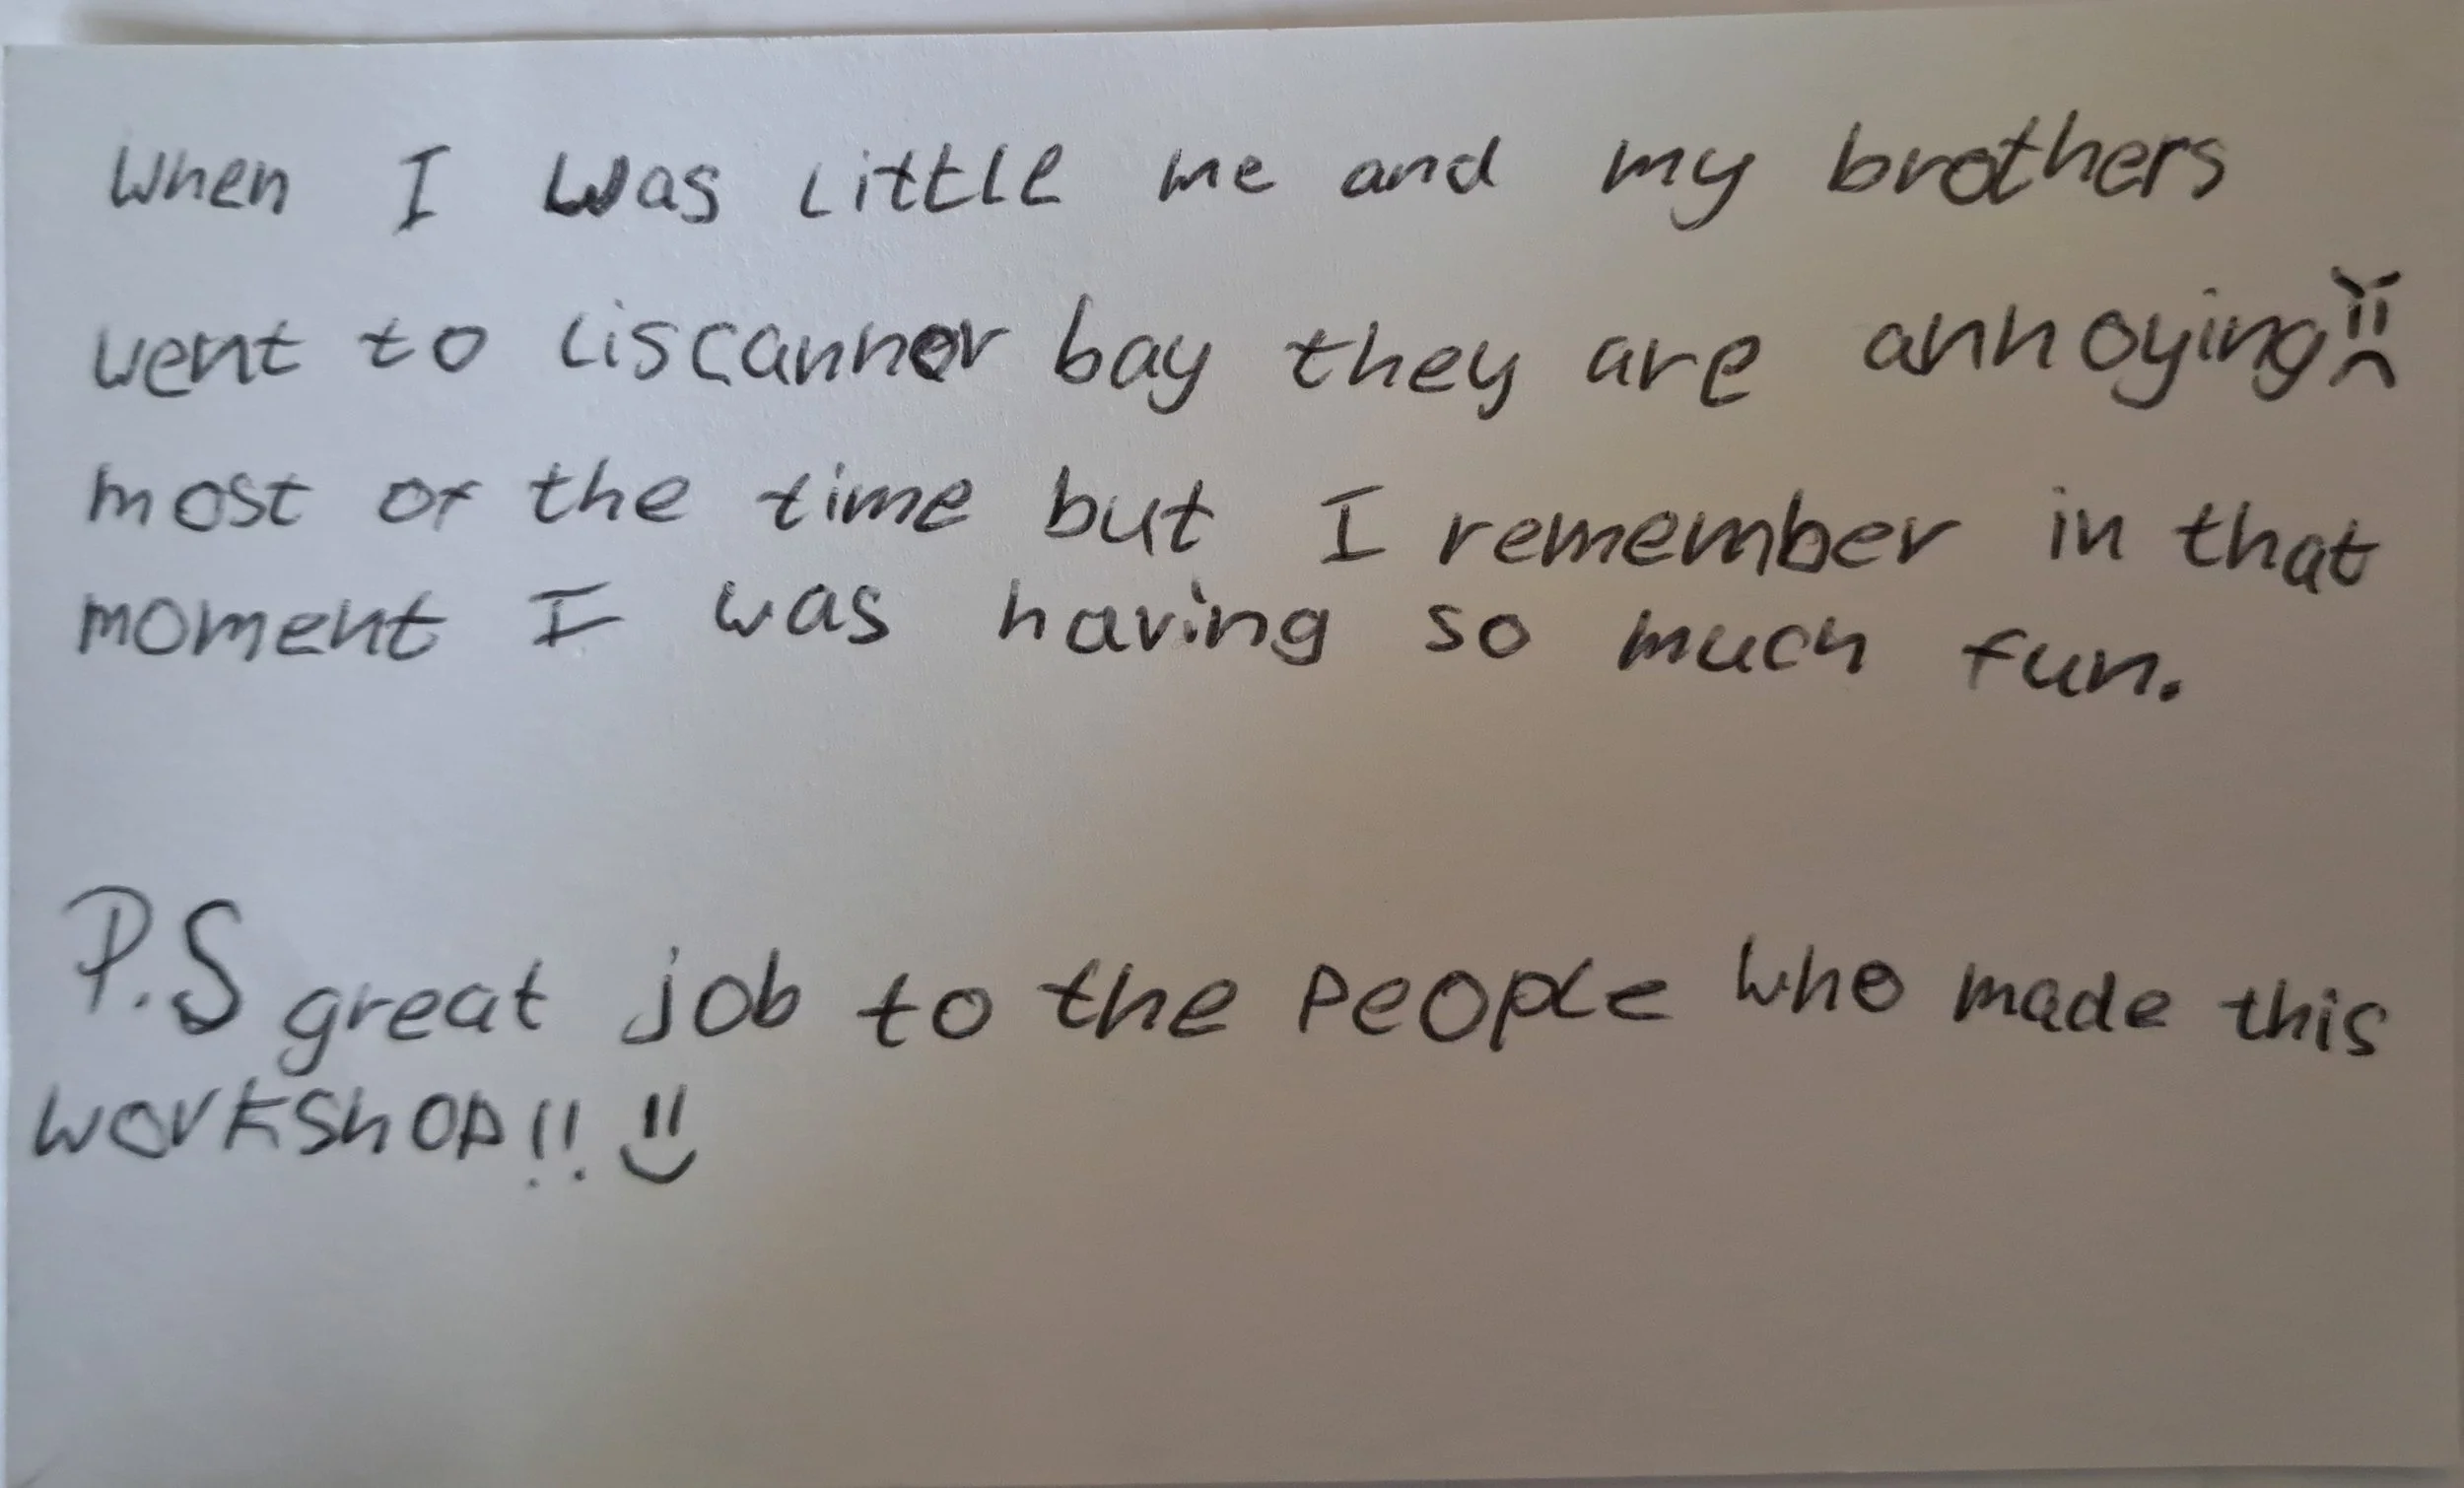 When I was little me and my brothers
went to Liscannor bay they are annoying
most of the time but I remember in that
moment I was having so much fun.
P.S great job to the people who made this
workshop!!